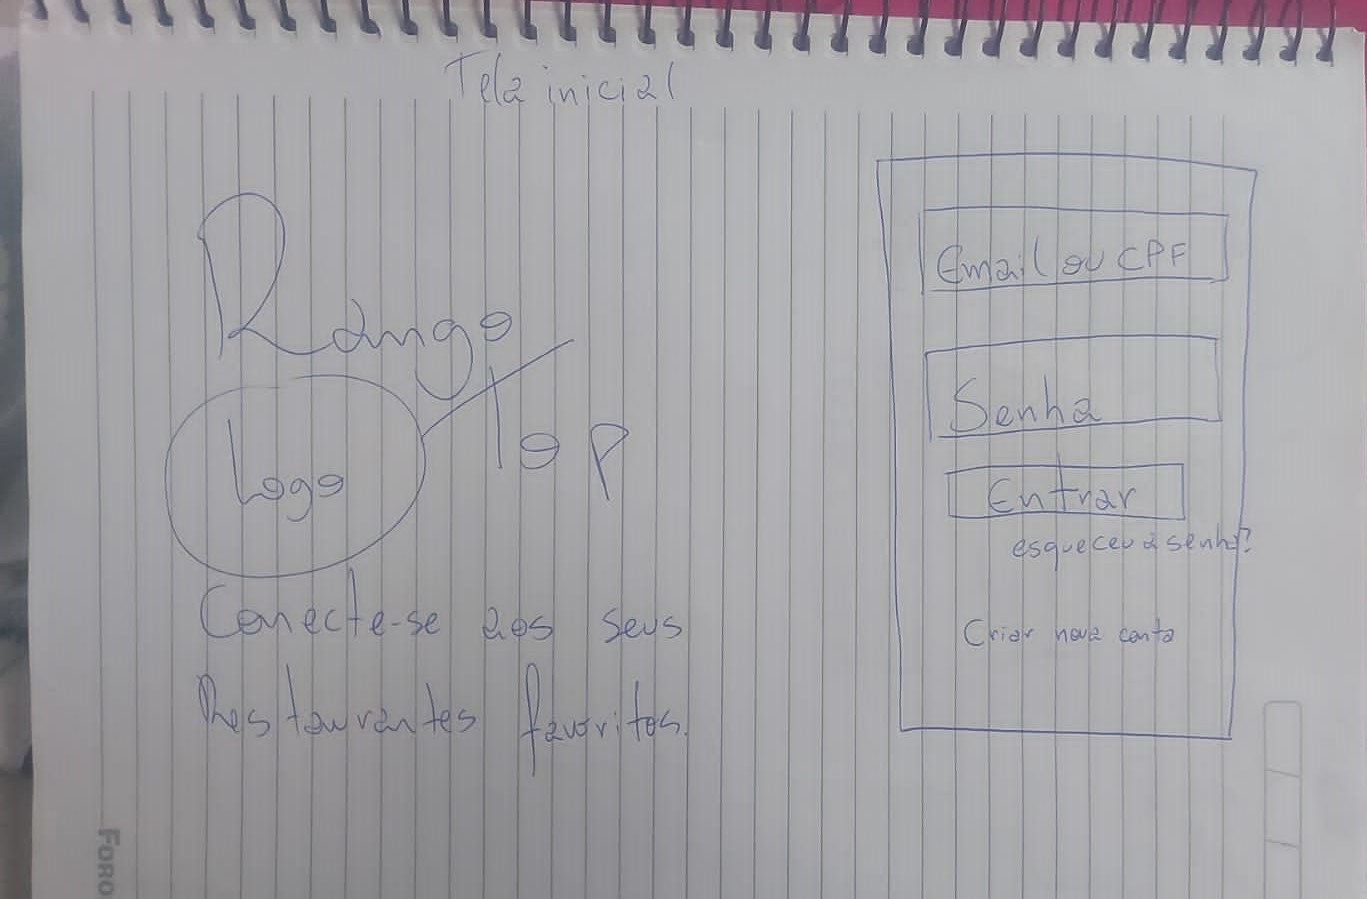 Tela inicial
Rango
Top
Logo
Conecte-se aos seus
Restaurantes favoritos.
Email ou CPF
Senha
Entrar
esqueceu a senha?
Criar nova conta
FORO